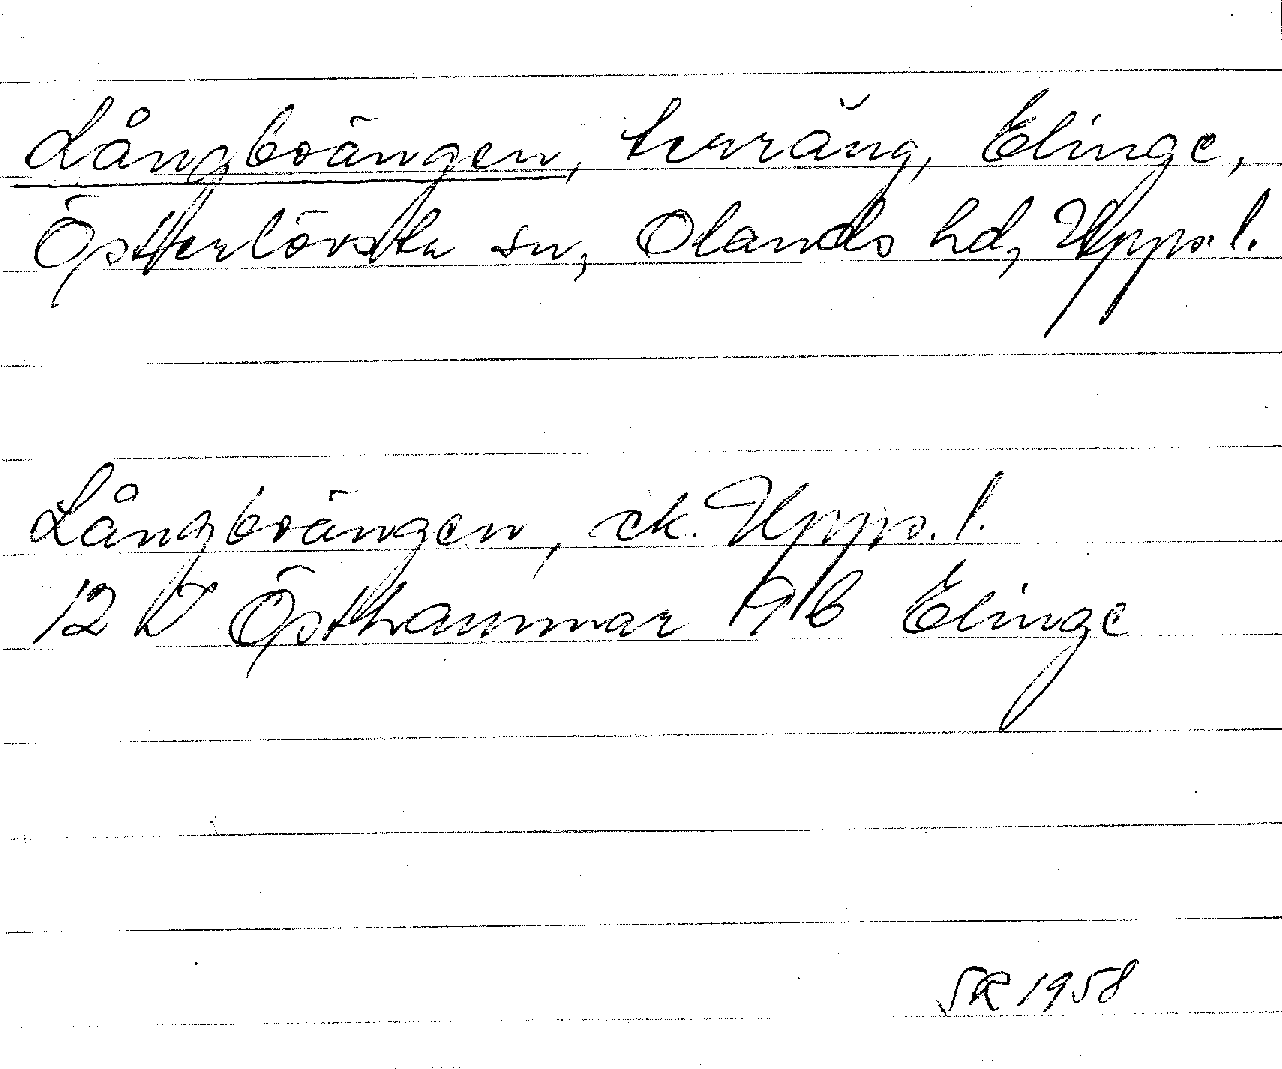 Långbroängen, terräng, Elinge,
Österlövsta sn, Olands hd, Upps. l.
Långbroängen, ek. Upps. l.
12 I Östhammar 9b Elinge
SR 1958